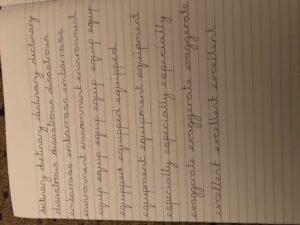 dictinary dictinary dictinary dictinary
disastrous disastrous disastrous
embarrass embarrass embarrass
environment environment environment
equip equip equip equip equip equip
equipped equipped equipped
equipment equipment equipment
especially especially especially
exaggerate exaggerate exaggerate
excellent excellent excellent